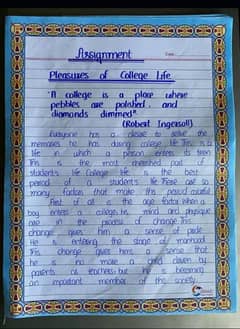 Assignment
Date:
Pleasures of College Life
"A college is a place where
pebbles are polished and
diamonds dimmed"
(Robert Ingersoll)
Everyone has a desire to the
memories he has during college life. This is a
life in which a person enters its teen
This is the most cherished part of
students life. College life is the best
period of a student's life. There are so
many factors that make this period colorful
First of all is the age factor. When a
boy enters a college, his mind and physique
are in the process of change. This
change gives him a sense of pride
He is entering the stage of manhood
This change gives him a sense that
he is no make a child driven by
parents or teachers but he is becoming
an important member of the society.